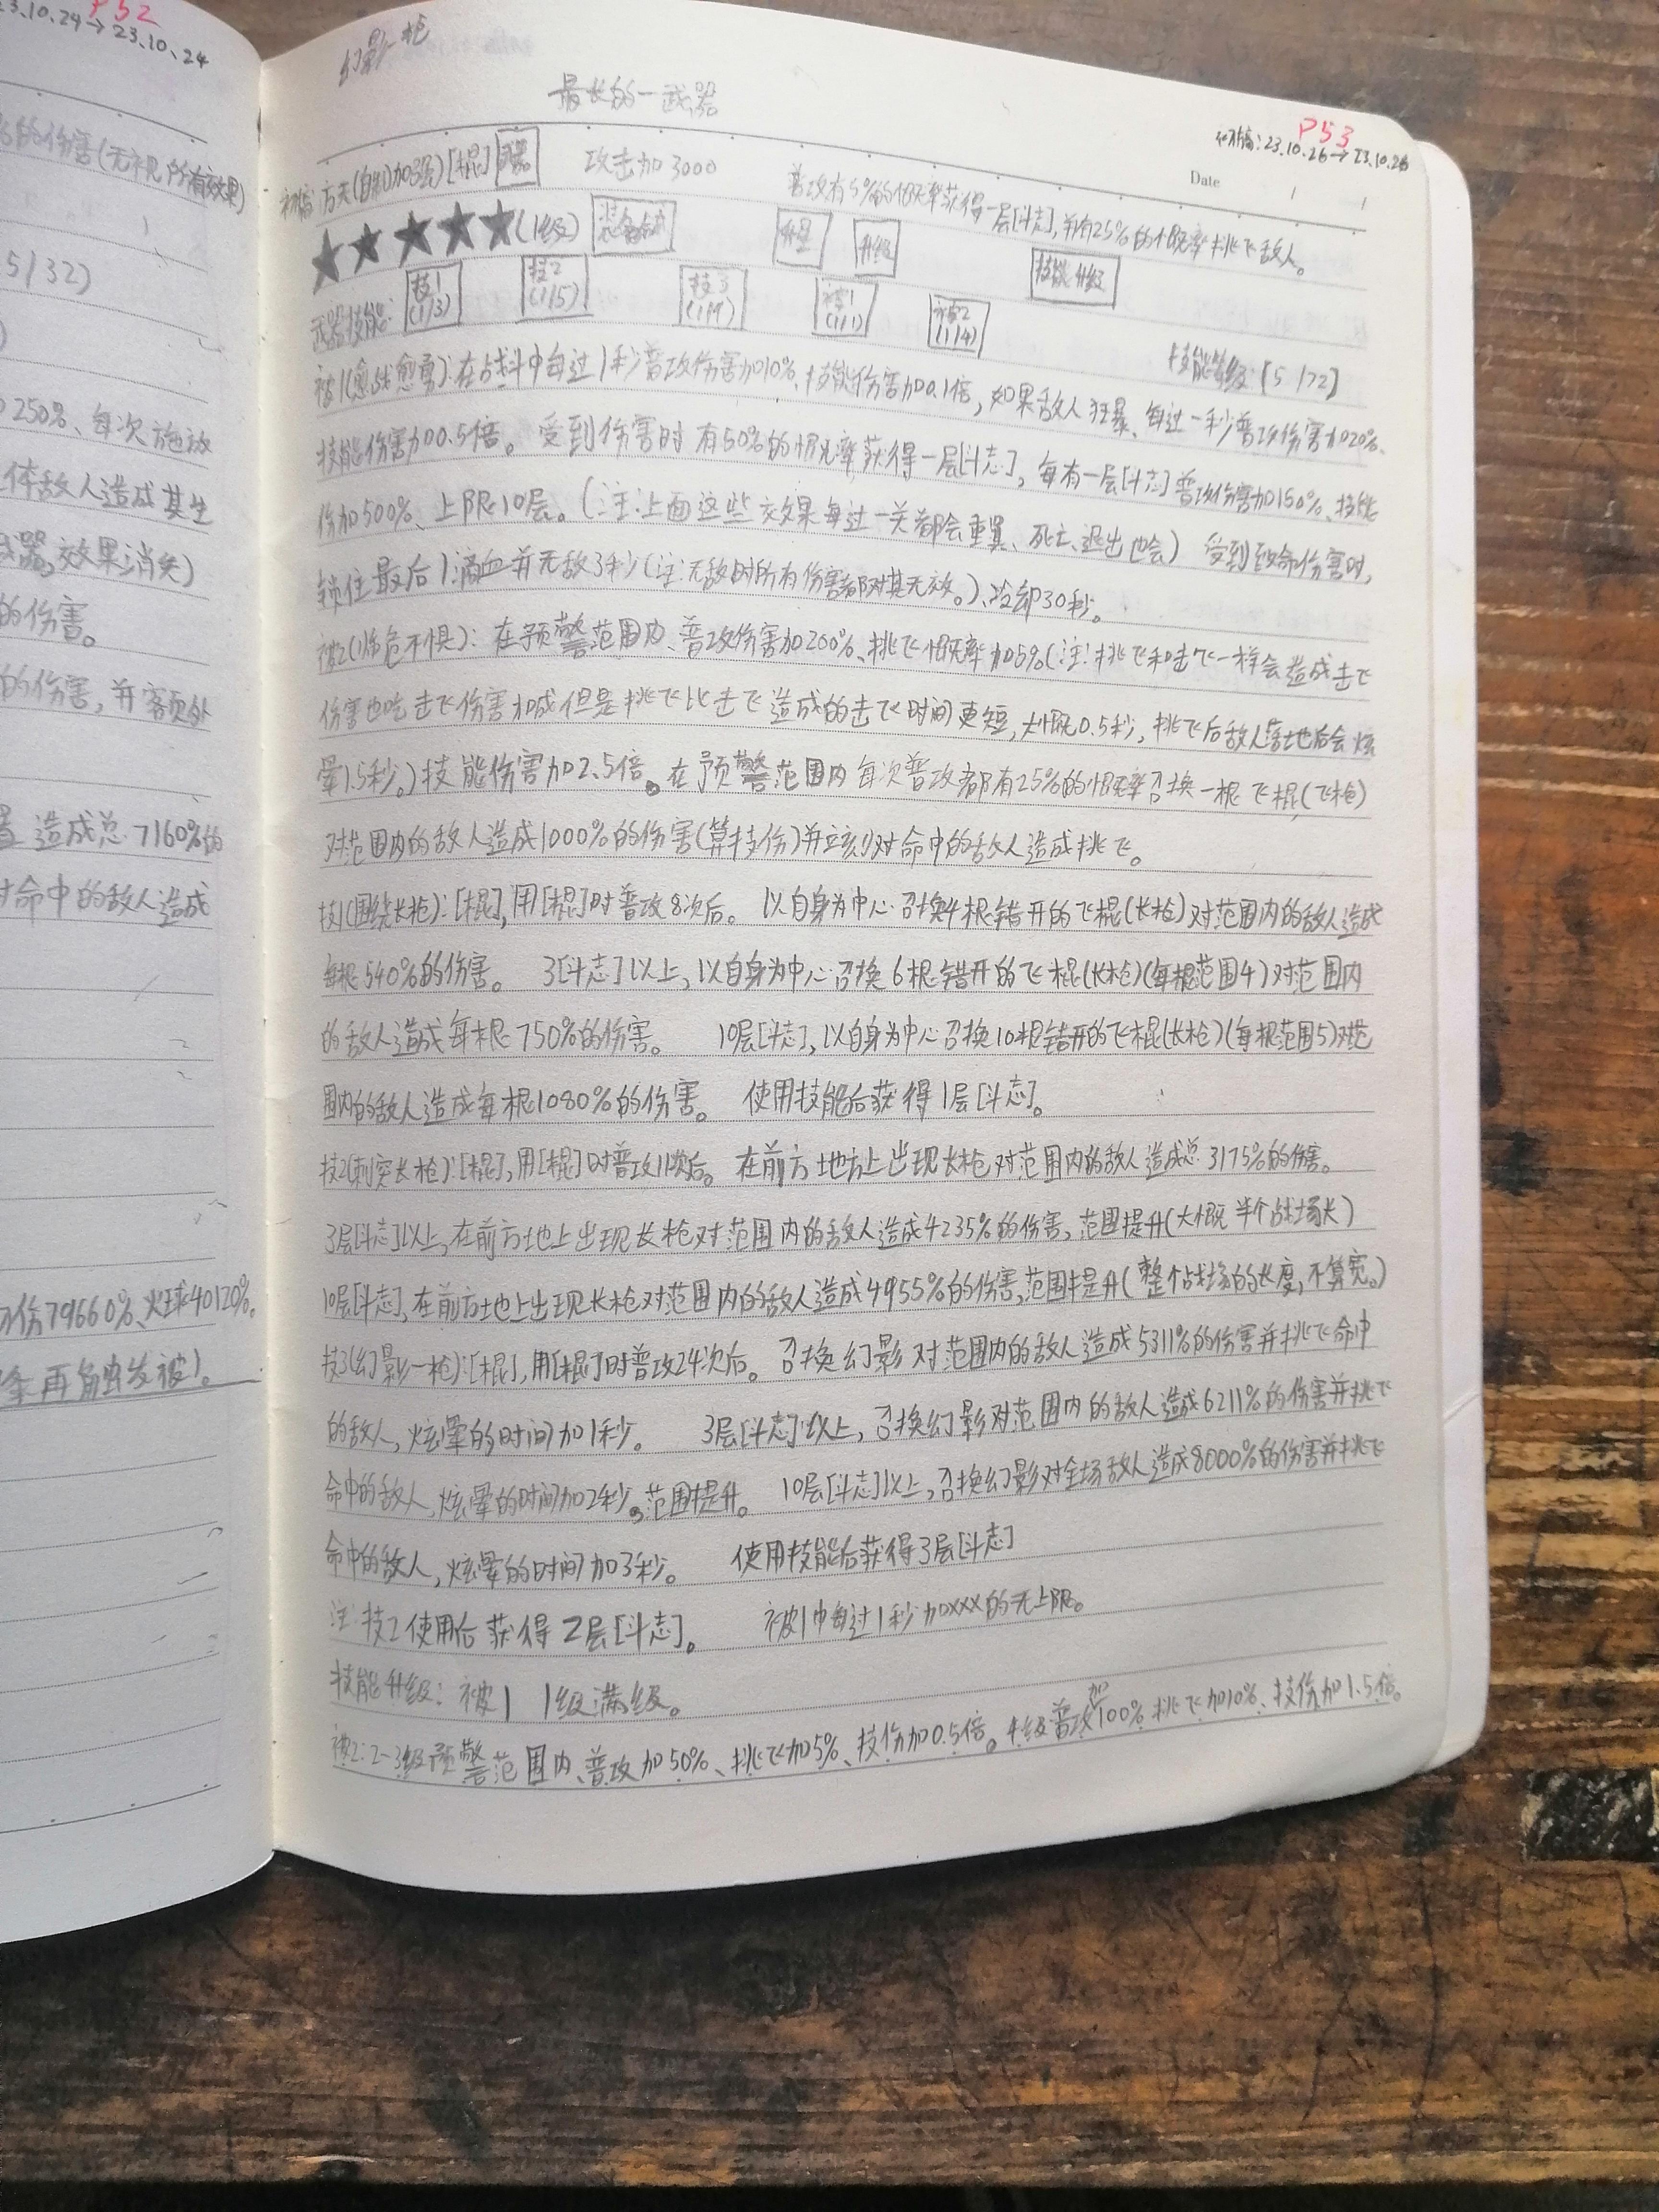 P52
23.10.24→23.10.24
%的伤害(无视所有效果)
5/32)
250%、每次施放
体敌人造成其生
武器,效果消失)
的伤害。
的伤害,并额外
造成总7160%的
命中的敌人造成
伤79660%、火球40120%。
再触发被1。
幻影一枪
最长的一武器
P53
初稿:23.10.26→23.10.26
Date / /
初稿:方天(自制)加强)[棍] 武器 攻击加3000 普攻有5%的概率获得一层[斗志],并有25%的概率挑飞敌人。
★★★★★(1级) 装备右 升星 升级 技能升级
武器技能: 技1(1/3) 技2(1/5) 技3(1/9) 被1(1/1) 被2(1/4) 技能等级:[5/22]
被1(愈战愈勇):在战斗中每过1秒普攻伤害加10%、技能伤害加0.1倍,如果敌人狂暴、每过一秒普攻伤害加20%、
技能伤害加0.5倍。受到伤害时有50%的概率获得一层[斗志],每有一层[斗志]普攻伤害加150%、技能
伤加500%、上限10层。(注:上面这些效果每过一关都会重置、死亡、退出也会) 受到致命伤害时,
锁住最后1滴血并无敌3秒(注:无敌时所有伤害都对其无效。)、冷却30秒。
被2(临危不惧):在预警范围内、普攻伤害加200%、挑飞概率加5%(注:挑飞和击飞一样会造成击飞
伤害也吃击飞伤害加成但是挑飞比击飞造成的击飞时间更短,大概0.5秒,挑飞后敌人落地后会炫
晕1.5秒。)技能伤害加2.5倍。在预警范围内每次普攻都有25%的概率召换一根飞棍(飞枪)
对范围内的敌人造成1000%的伤害(算技伤)并立刻对命中的敌人造成挑飞。
技1(围绕长枪):[棍],用[棍]时普攻8次后。以自身为中心召换4根错开的飞棍(长枪)对范围内的敌人造成
每根540%的伤害。 3[斗志]以上,以自身为中心召换6根错开的飞棍(长枪)(每根范围4)对范围内
的敌人造成每根750%的伤害。 10层[斗志],以自身为中心召换10根错开的飞棍(长枪)(每根范围5)对范
围内的敌人造成每根1080%的伤害。 使用技能后获得1层[斗志]。
技2(刺突长枪):[棍],用[棍]时普攻11次后。在前方地方上出现长枪对范围内的敌人造成总3175%的伤害。
3层[斗志]以上,在前方地上出现长枪对范围内的敌人造成4235%的伤害,范围提升(大概半个战场长)
10层[斗志],在前方地上出现长枪对范围内的敌人造成4955%的伤害,范围提升(整个战场的长度,不算宽。)
技3(幻影一枪):[棍],用[棍]时普攻24次后。召换幻影对范围内的敌人造成5311%的伤害并挑飞命中
的敌人,炫晕的时间加1秒。 3层[斗志]以上,召换幻影对范围内的敌人造成6211%的伤害并挑飞
命中的敌人,炫晕的时间加2秒。范围提升。 10层[斗志]以上,召换幻影对全场敌人造成8000%的伤害并挑飞
命中的敌人,炫晕的时间加3秒。 使用技能后获得3层[斗志]
注:技2使用后获得2层[斗志]。 被1中每过1秒加xxx的无上限。
技能升级:被1 1级满级。
被2:2-3级预警范围内、普攻加50%、挑飞加5%、技伤加0.5倍。4级普攻加100%挑飞加10%、技伤加1.5倍。